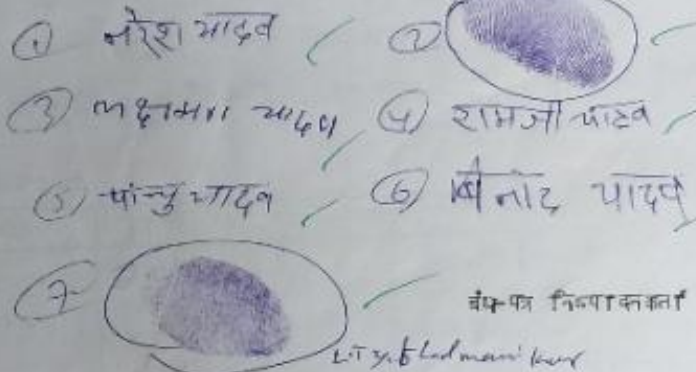 ① नरेश यादव ②
③ लक्ष्मण यादव ④ रामजी यादव
⑤ यादव ⑥ बिनोद यादव
⑦
बंध-पत्र निष्पादनकर्ता
L.T.